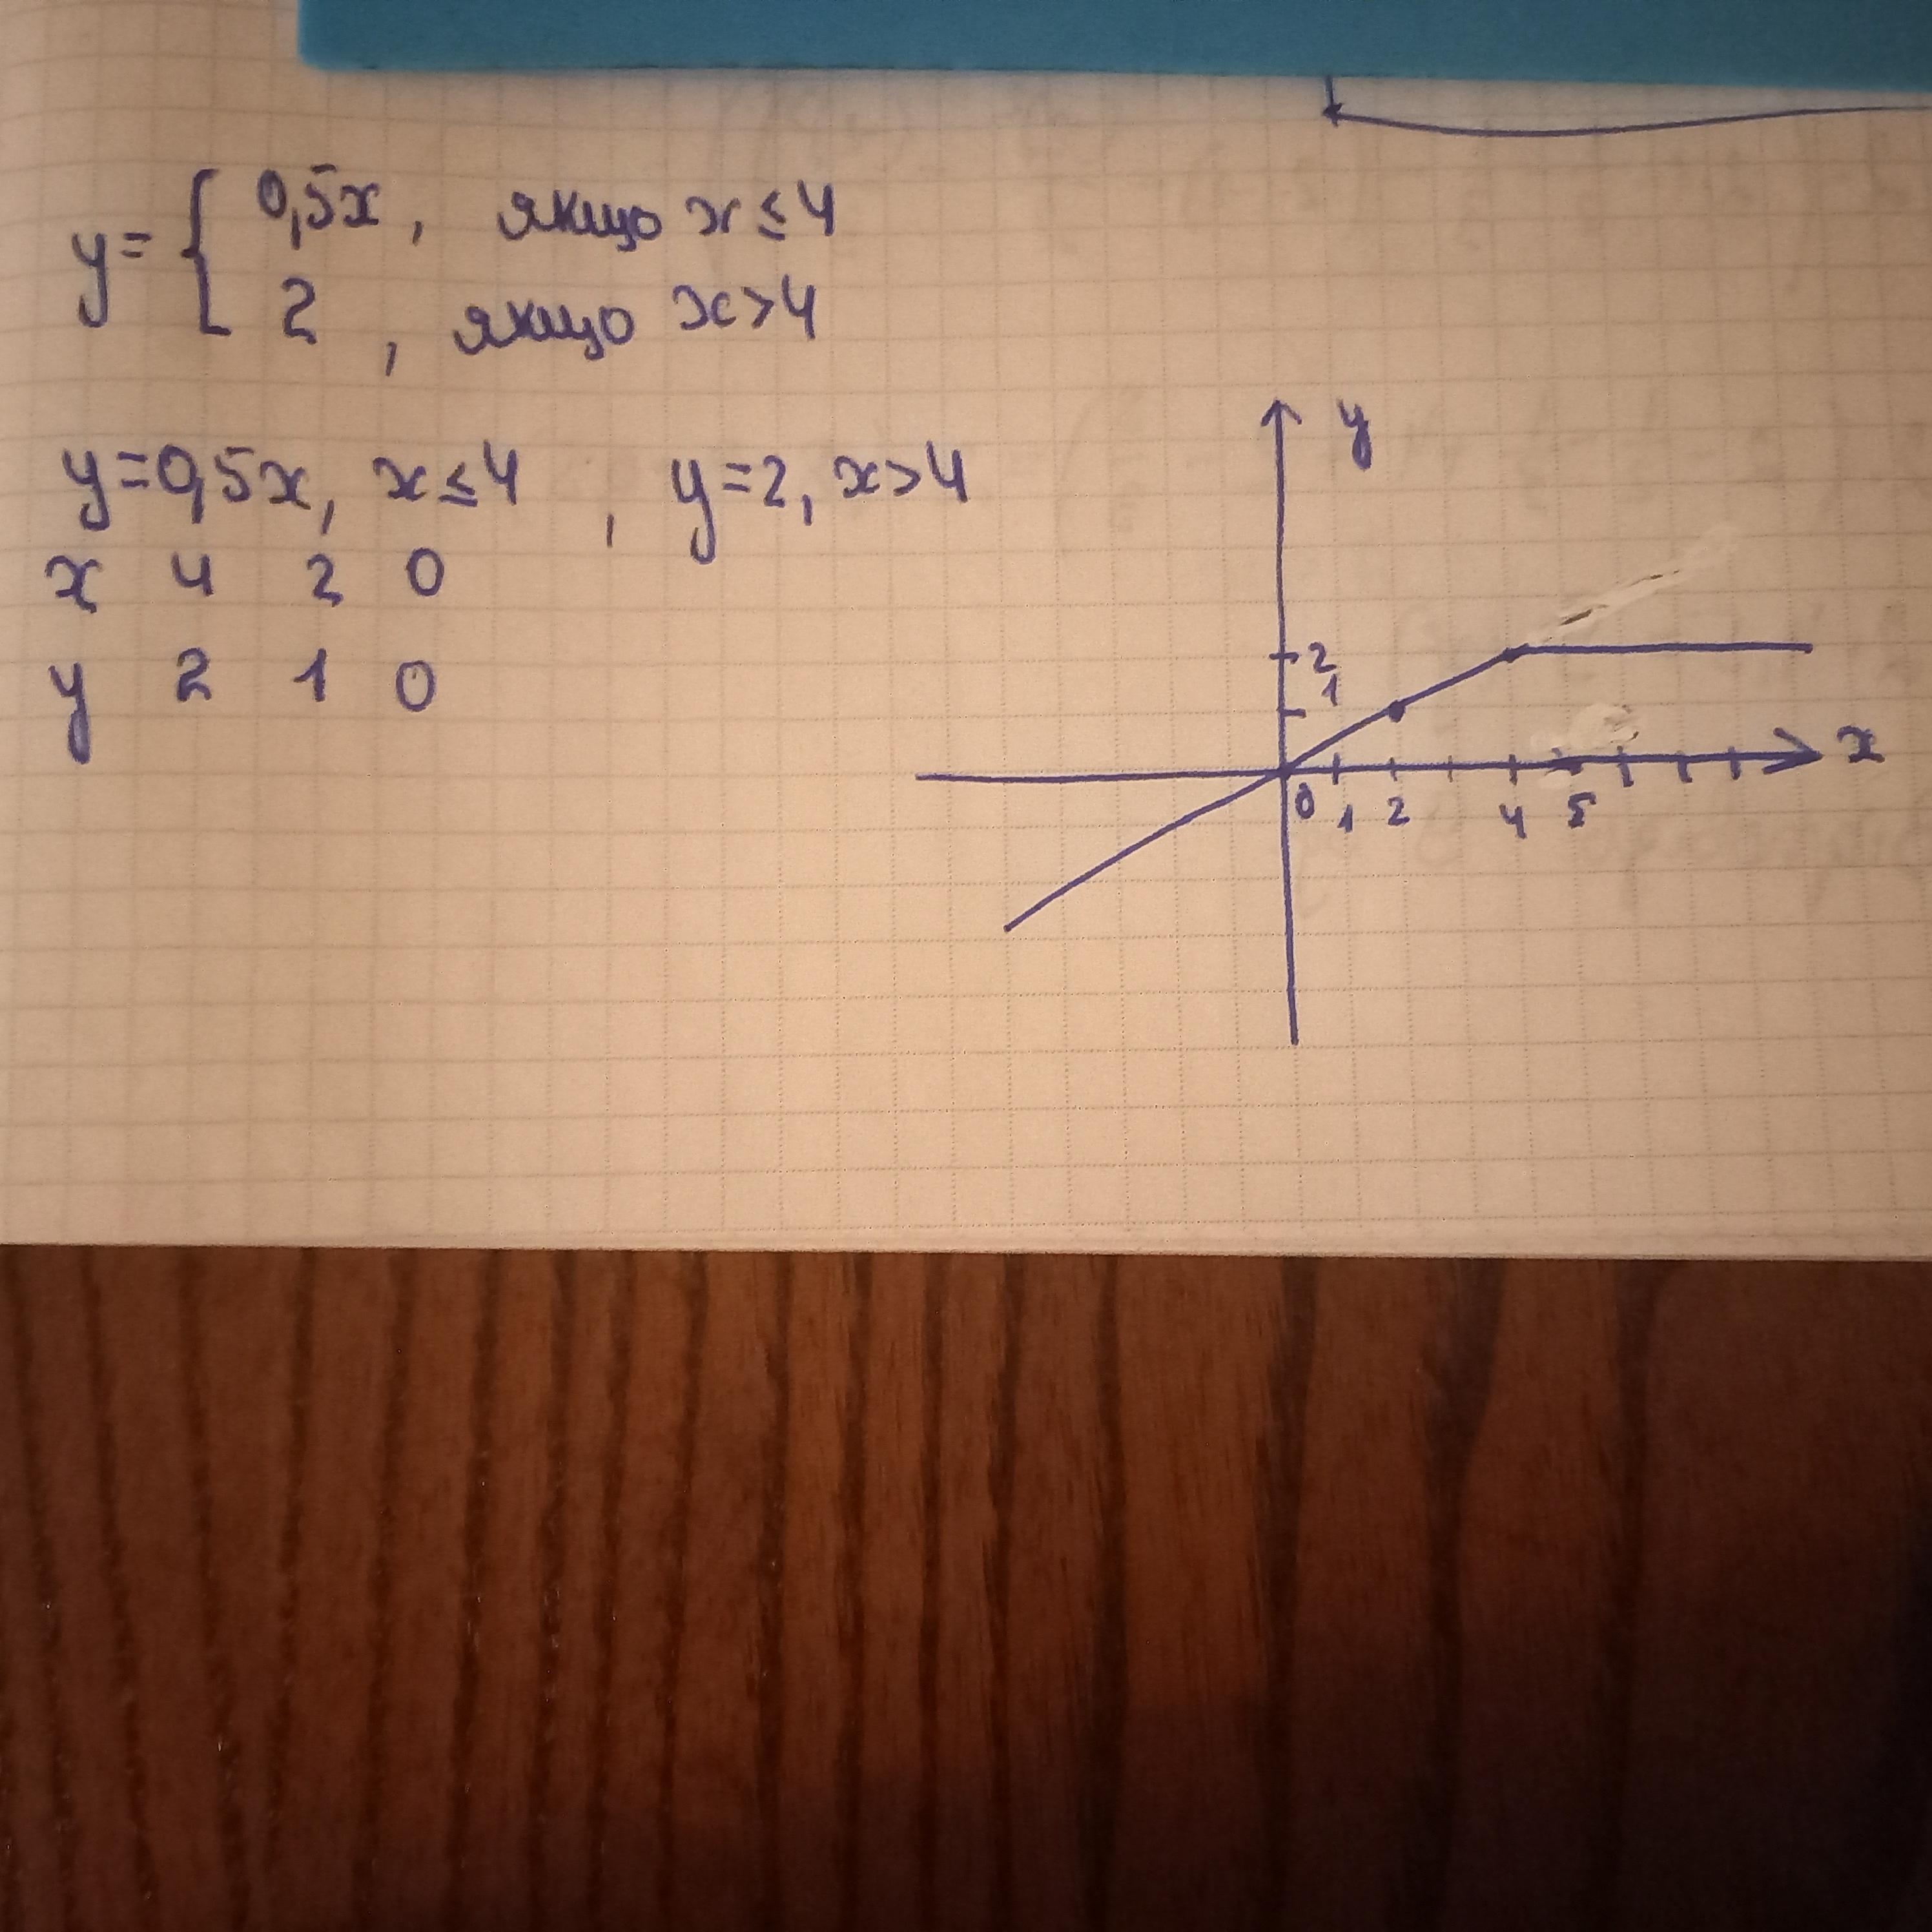 y = { 0,5x, якщо x ≤ 4
2, якщо x > 4
y = 0,5x, x ≤ 4, y = 2, x > 4
x 4 2 0
y 2 1 0
y
2
1
x
0 1 2 4 5